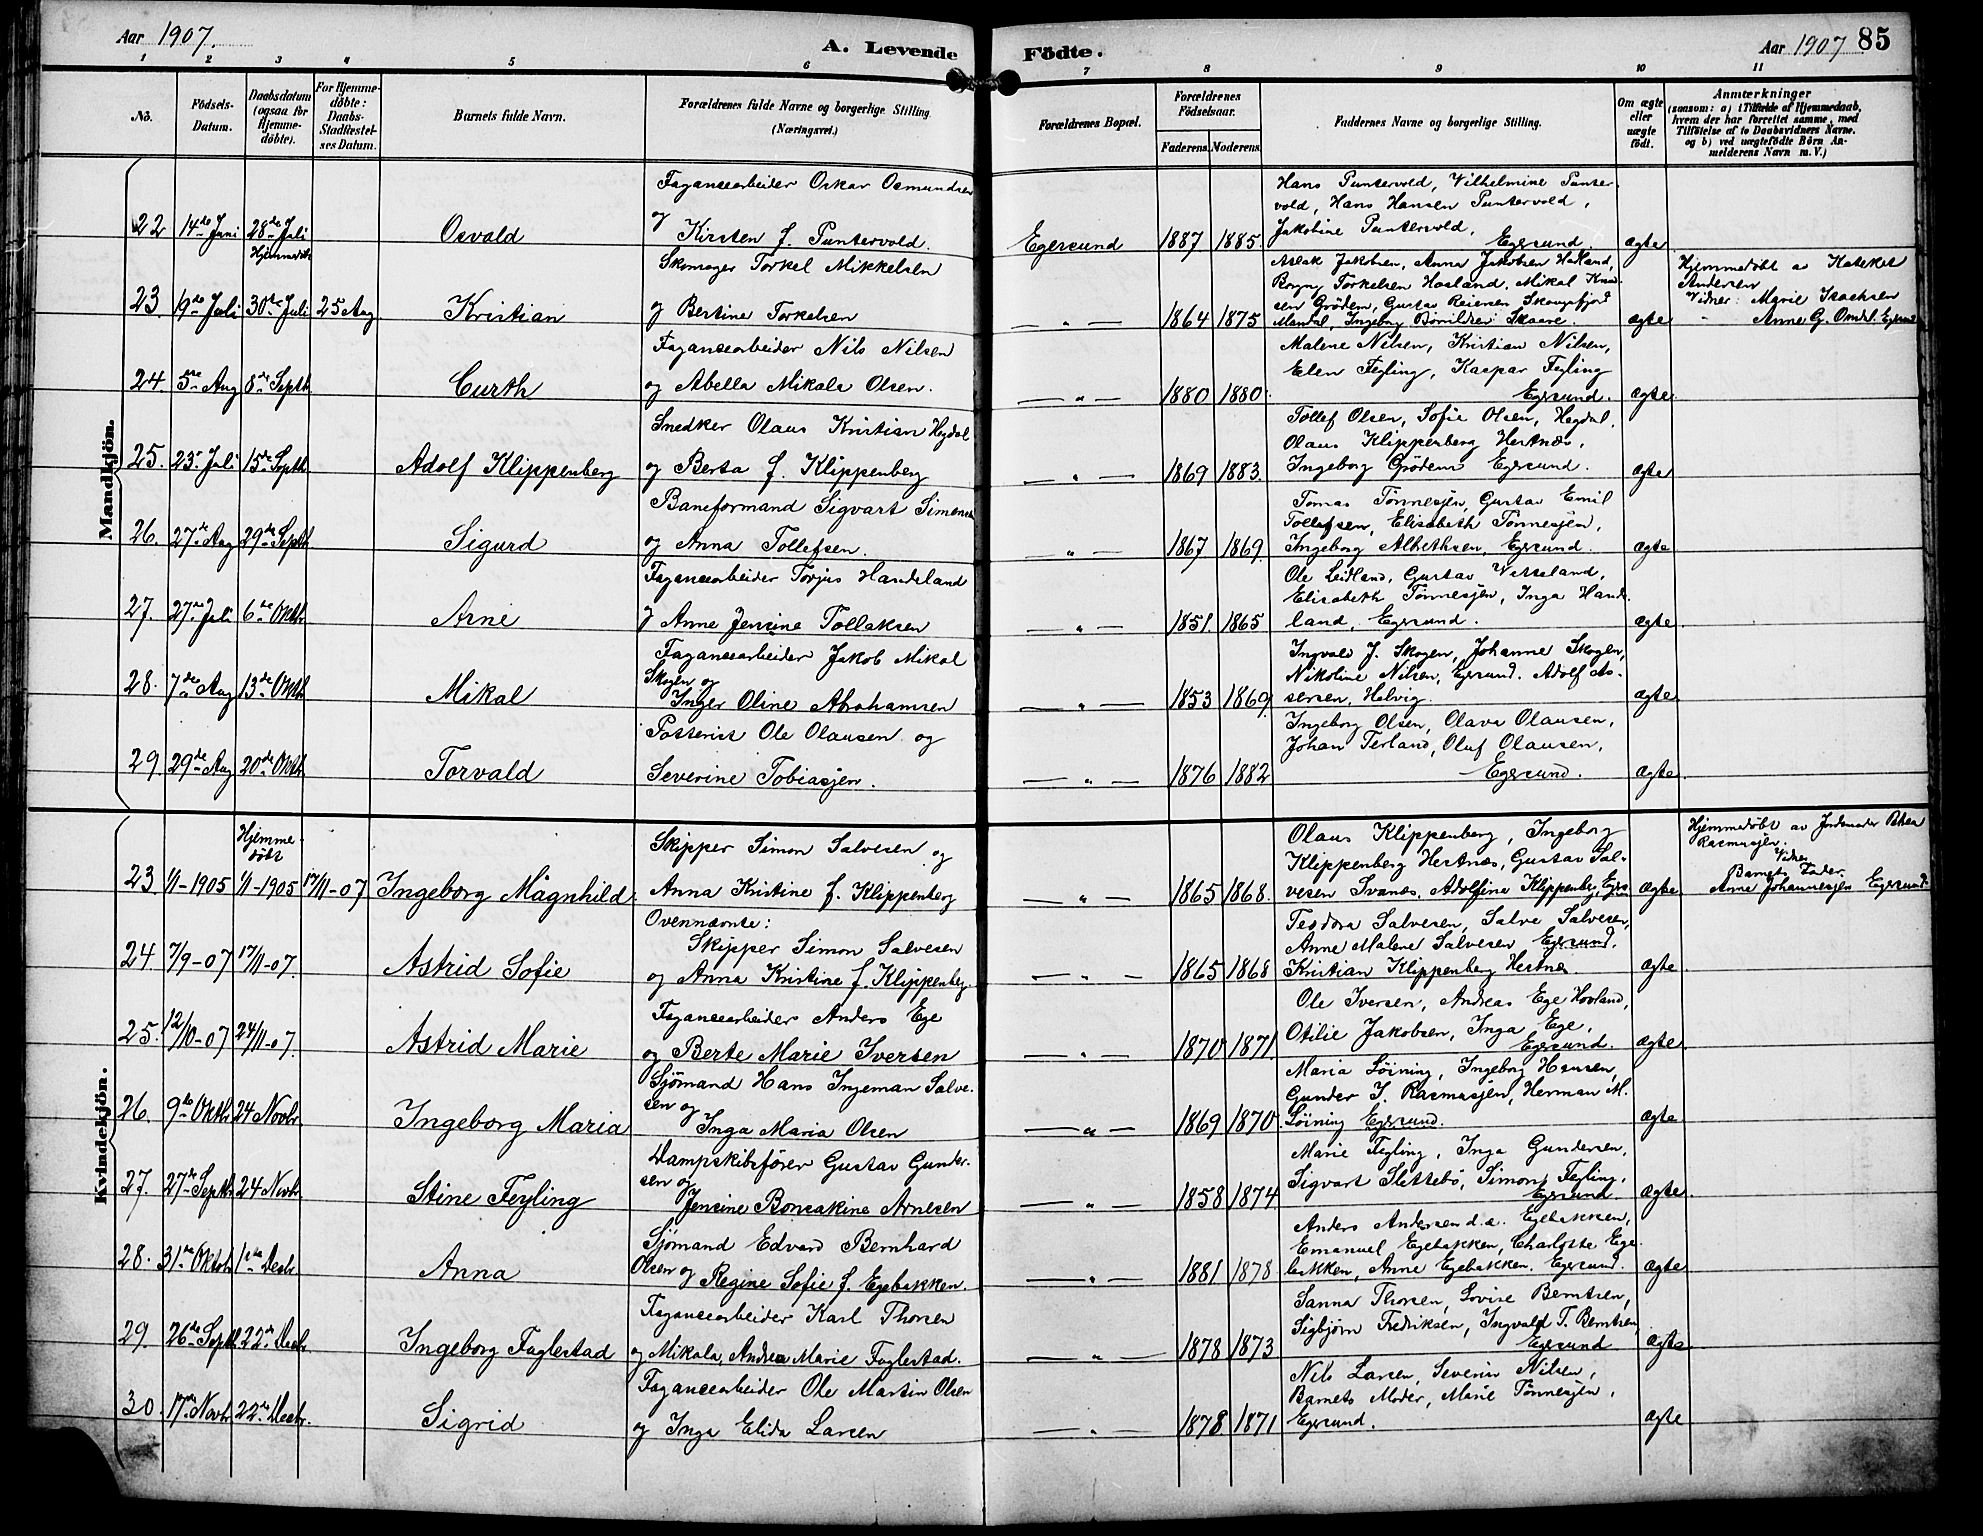 Aar 1907.
A. Levende Födte.
Aar 1907 85
1 2 3 4 5 6 7 8 9 10 11
No.
Födsels-Datum.
Daabsdatum (ogsaa for Hjemme-döbte).
For Hjemme-döbte: Daabs-Stadfæstel-ses Datum.
Barnets fulde Navn.
Forældrenes fulde Navne og borgerlige Stilling (Næringsvei.)
Forældrenes Bopæl.
Forældrenes Födselsaar.
Faderens. Moderens.
Faddernes Navne og borgerlige Stilling.
Om ægte eller uægte födt.
Anmærkninger
(saasom: a) i Tilfælde af Hjemmedaab,
hvem der har forrettet samme, med
Tilföielse af to Daabsvidners Navne,
og b) ved uægtefödte Börn An-
melderens Navn m. V.)
Mandkjön.
22 14de Juni 28de Juli
Osvald
Fayancearbeider Oskar Osmundsen
og
Kirsten f. Puntervold.
Egersund 1887 1885
Hans Puntervold, Vilhelmine Punter-
vold, Hans Hansen Puntervold,
Jakobine Puntervold,
Egersund. ægte
23 19de Juli Hjemmedöbt 30te Juli 25 Aug
Kristian
Skomager Torkel Mikkelsen
og Bertine Torkelsen
— " — 1864 1875
Aslak Jakobsen, Anna Jakobsen Hasland,
Torkelsen Hasland, Mikal Knud-
sen Grödem, Gustav Reiersen
Mandal, Ingeborg Skaare. ægte
Hjemmedöbt av Kateket
Andersen
Vidner: Marie Isachsen
" Anne G. Omdal. Egersund
24. 5te Aug 8de Septb
Curth
Fayancearbeider Nils Nilsen
og Abella Mikala Olsen.
— " — 1880 1880
Malene Nilsen, Kristian Nilsen,
Elen Feyling, Kaspar Feyling
Egersund. ægte
25. 23 Juli 15de Septb
Adolf Klippenberg
Snedker Olaus Kristian Hegdal
og Berta f. Klippenberg
— " — 1869 1883.
Tollef Olsen, Sofie Olsen, Hegdal,
Olaus Klippenberg Hestnæs,
Ingeborg Grödem Egersund. ægte
26. 27de Aug 29de Septb
Sigurd
Baneformand Sigvart Simonsen
og Anna Tollefsen.
— " — 1867 1869
Tomas Tönnesjen, Gustav Emil
Tollefsen, Elisabeth Tönnesjen,
Ingeborg Albethsen, Egersund. ægte
27. 27de Juli 6te Oktbr
Arne
Fayancearbeider Torjus Handeland
og Anne Jensine Tollaksen
— " — 1851. 1865
Ole Leidland, Gustav Vetteland,
Elisabeth Tönnesjen, Inga Hande-
land, Egersund. ægte
28. 7de Aug 13de Oktb
Mikal
Fayancearbeider Jakob Mikal
Skogen og
Inger Oline Abrahamsen
— " — 1853 1869
Ingvald J. Skogen, Johanne Skogen,
Nikoline Nilsen, Egersund. Adolf As-
sersen, Helvig. ægte
29 29de Aug 20de Oktb
Torvald
Posterist Ole Olausen og
Severine Tobiasjen.
— " — 1876 1882
Ingeborg Olsen, Olava Olausen,
Johan Terland, Oluf Olausen,
Egersund. ægte
Kvindekjön.
23 1/1-1905 Hjemme-döbt 1/1-1905 17/11-07
Ingeborg Magnhild
Skipper Simon Salvesen og
Anna Kristine f. Klippenberg
— " — 1865 1868.
Olaus Klippenberg, Ingeborg
Klippenberg Hestnæs, Gustav Sal-
vesen Svanæs, Adolfine Klippenberg, Egrs ægte
Hjemmedöbt av Jordmoder
Rasmusjen.
Vidner
Barnets Fader
Anne Johannesjen Egersund
24 7/9-07 17/11-07
Astrid Sofie
Ovennævnte:
Skipper Simon Salvesen
og Anna Kristine f. Klippenberg.
— " — 1865 1868
Teodora Salvesen, Salve Salvesen,
Anne Malene Salvesen Egersund,
Kristian Klippenberg Hestnæs ægte
25. 12/10-07 24/11-07.
Astrid Marie
Fayancearbeider Anders Ege
og Berte Marie Iversen
— " — 1870 1871
Ole Iversen, Andreas Ege Hovland,
Otilie Jakobsen, Inga Ege,
Egersund. ægte
26. 9de Oktbr 24 Novbr
Ingeborg Maria
Sjömand Hans Ingeman Salve-
sen og
Inga Maria Olsen
— " — 1869 1870
Maria Löining, Ingeborg Hansen,
Gunder J. Rasmusjen, Herman M.
Löining Egersund. ægte
27. 27de Septb 24 Novbr
Stine Feyling
Dampskibsförer Gustav Gunder-
sen og
Jensine Bonsakine Arnesen
— " — 1858 1874
Marie Feyling, Inga Gundersen,
Sigvart Slettebö, Simon Feyling,
Egersund ægte
28. 31te Oktobr 1ste Decbr.
Anna
Sjömand Edvard Bernhard
Olsen og
Regine Sofie f. Egebakken.
— " — 1881 1878
Anders Andersen d.æ. Egebakken,
Emanuel Egebakken, Charlotte Ege-
bakken, Anne Egebakken. Egersund. ægte
29. 26de Septb 22de Decbr
Ingeborg Faglestad
Fayancearbeider Karl Thorsen
og Mikala Andrea Marie Faglestad.
— " — 1878 1873
Sanna Thorsen, Lovise Berntsen,
Sigbjörn Fredriksen, Ingvald T. Berntsen
Egersund ægte
30. 17de Novbr 22de Decbr.
Sigrid
Fayancearbeider Ole Martin Olsen
og Inga Elida Larsen
— " — 1878 1871
Nils Larsen, Severin Nilsen,
Barnets Moder, Marie Tönnesjen,
Egersund. ægte